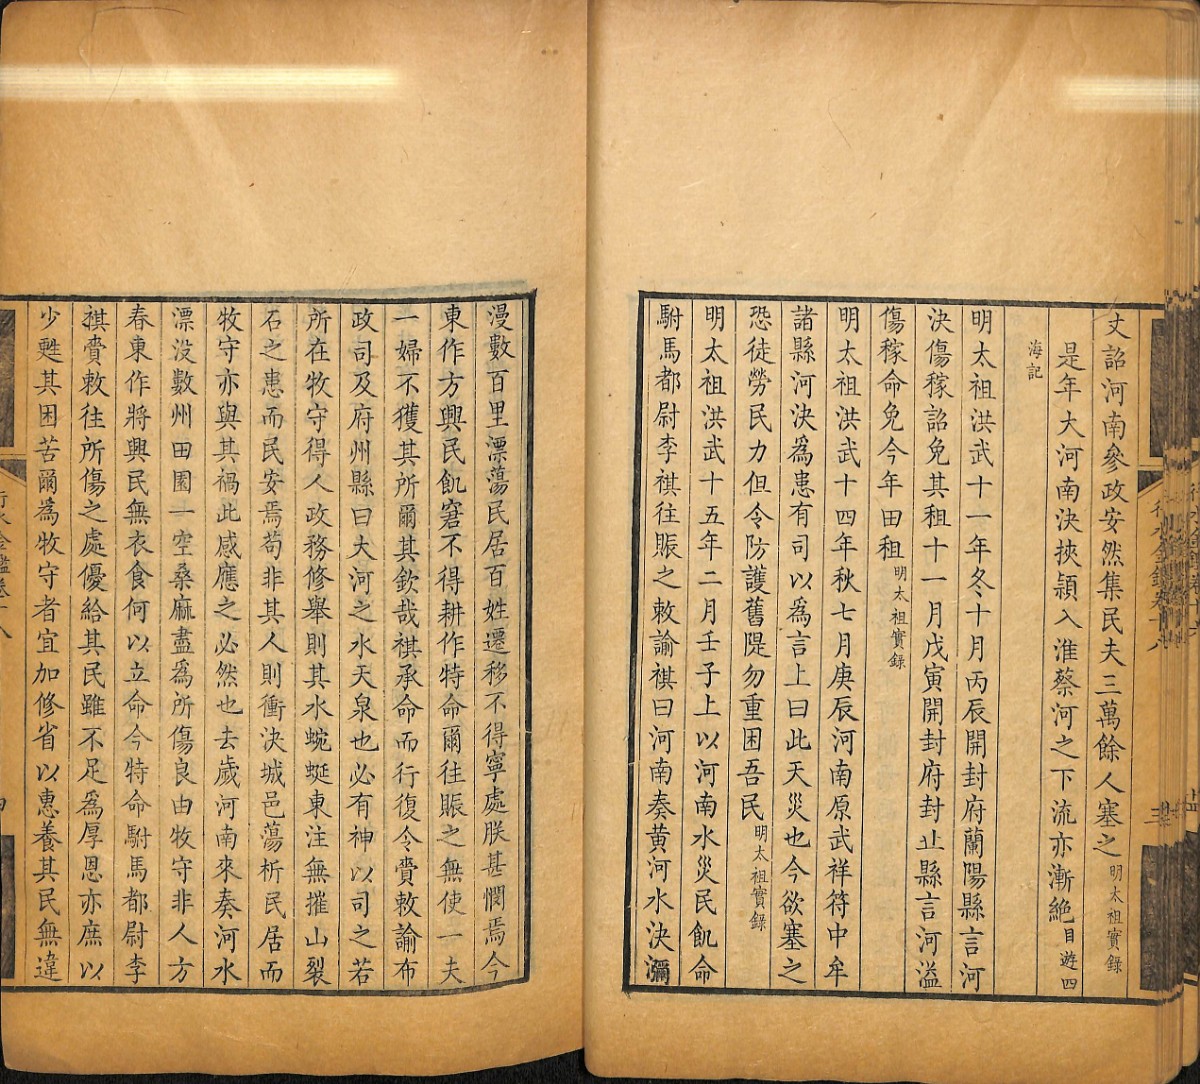 丈詔河南參政安然集民夫三萬餘人塞之明太祖實錄
是年大河南決挾潁入淮蔡河之下流亦漸絶目遊四
海記
明太祖洪武十一年冬十月丙辰開封府蘭陽縣言河
決傷稼詔免其租十一月戊寅開封府封丘縣言河溢
傷稼命免今年田租明太祖實錄
明太祖洪武十四年秋七月庚辰河南原武祥符中牟
諸縣河決為患有司以為言上曰此天災也今欲塞之
恐徒勞民力但令防護舊隄勿重困吾民明太祖實錄
明太祖洪武十五年二月壬子上以河南水災民飢命
駙馬都尉李祺往賑之敕諭祺曰河南奏黃河水決瀰
漫數百里漂蕩民居百姓遷移不得寧處朕甚憫焉今
東作方興民飢窘不得耕作特命爾往賑之無使一夫
一婦不獲其所爾其欽哉祺承命而行復令賷敕諭布
政司及府州縣曰大河之水天泉也必有神以司之若
所在牧守得人政務修舉則其水蜿蜒東注無摧山裂
石之患而民安焉苟非其人則衝決城邑蕩析民居而
牧守亦與其禍此感應之必然也去歲河南來奏河水
漂没數州田園一空桑麻盡為所傷良由牧守非人方
春東作將興民無衣食何以立命今特命駙馬都尉李
祺賷敕往所傷之處優給其民雖不足為厚恩亦庶以
少甦其困苦爾為牧守者宜加修省以惠養其民無違